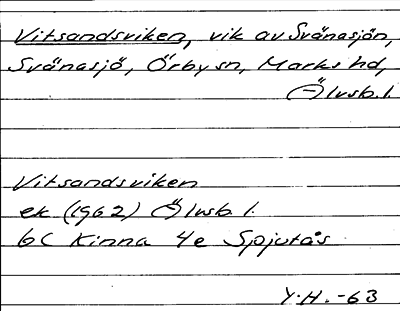 Vitsandsviken, vik av Svänasjön,
Svänasjö, Örby sn, Marks hd,
Älvsb. l.
Vitsandsviken
ek (1962) Älvsb l.
6C Kinna 4e Spjutås
Y.H. -63